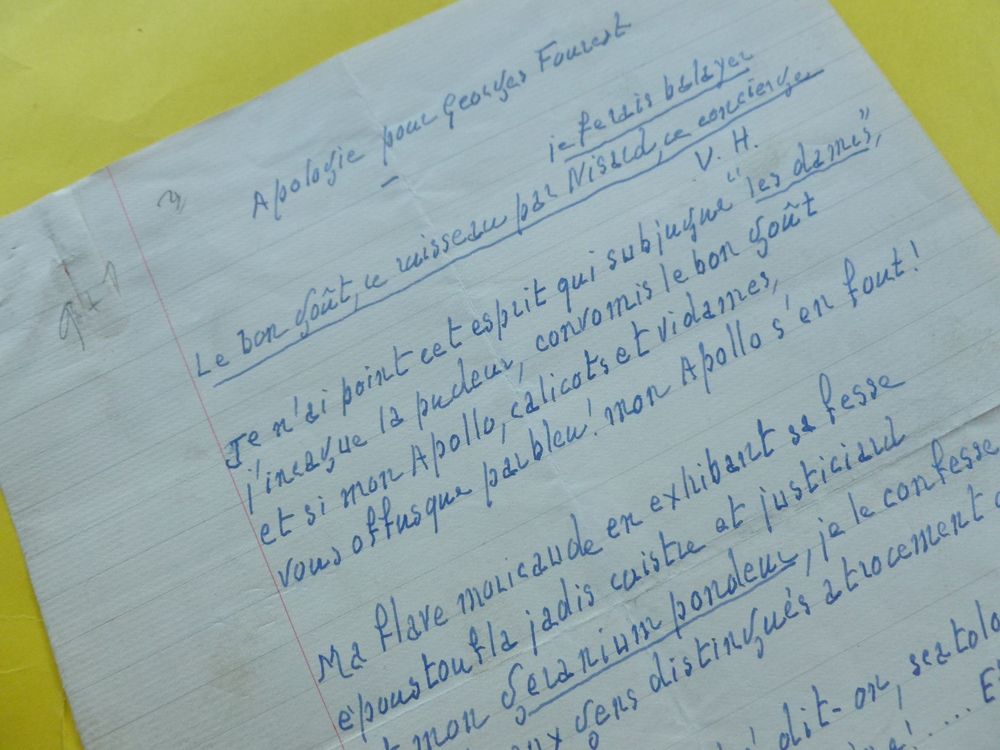 Apologie pour Georges Fourest
je ferais balayer
Le bon goût, ce ruisseau par Nisard, ce concierge
V. H.
Je n'ai point cet esprit qui subjugue "les dames",
j'incague la pudeur, convomis le bon goût
et si mon Apollo, calicots et vidames,
vous offusque parbleu! mon Apollo s'en fout!
Ma flave moricaude en exhibant sa fesse
epoustoufla jadis cuistre et justiciard
et mon geranium pondeur, je le confesse
gens distingués atrocement
dit-on,